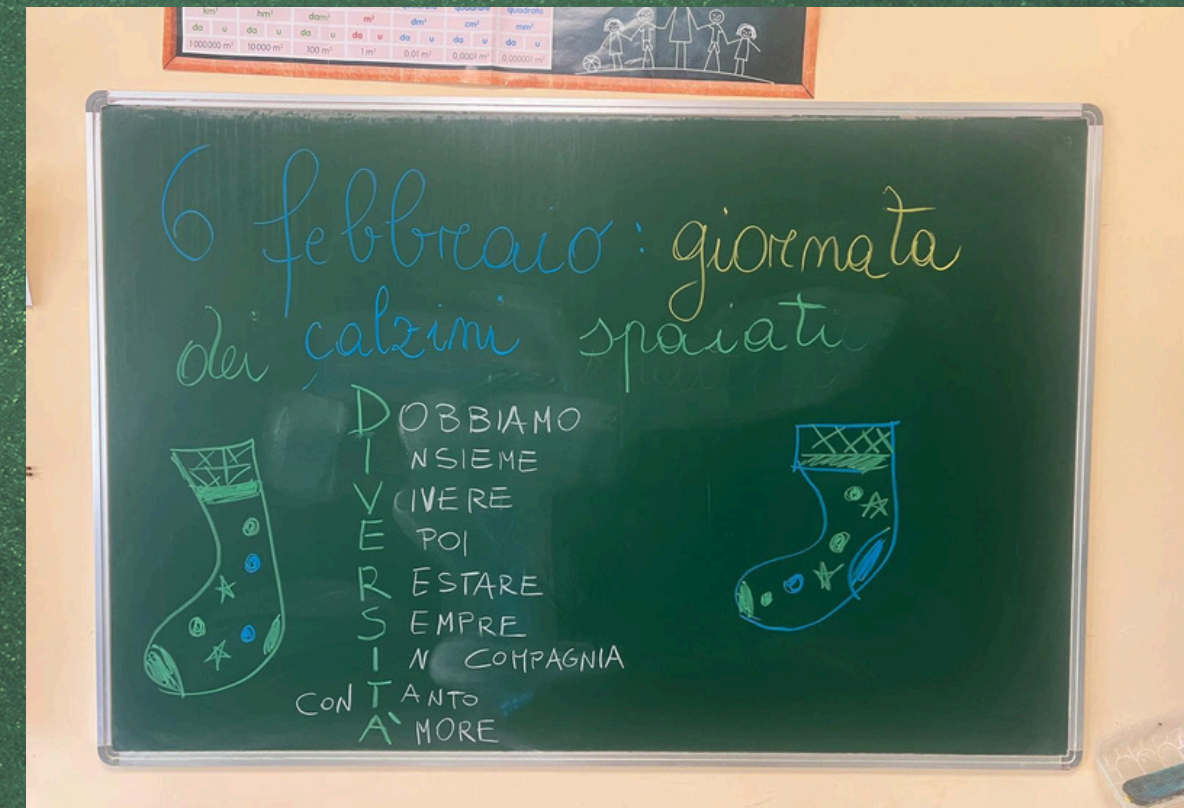 km² hm² dam² m² dm² cm² mm²
quadrato quadrato
da u da u da u da u da u da u da u
1 000 000 m² 10 000 m² 100 m² 1 m² 0,01 m² 0,0001 m² 0,000001 m²
6 febbraio: giornata
dei calzini spaiati
DOBBIAMO
INSIEME
VIVERE
E POI
RESTARE
SEMPRE
IN COMPAGNIA
CON TANTO
À MORE